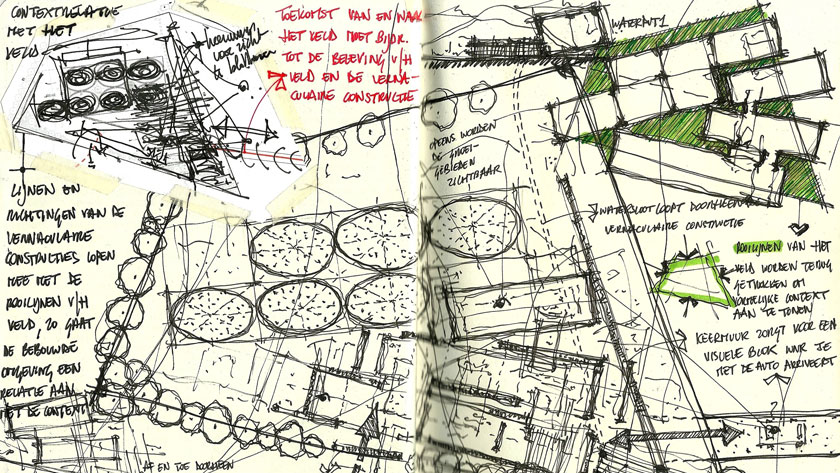 CONTEXTRELATIE
MET HET
VELD
TOEKOMST VAN EN NAAR
HET VELD MET BIJDR.
TOT DE BELEVING V/H
VELD EN DE VERNA-
CULAIRE CONSTRUCTIE
LIJNEN EN
RICHTINGEN VAN DE
VERNACULAIRE
CONSTRUCTIES LOPEN
MEE MET DE
ROOILIJNEN V/H
VELD, ZO GAAT
DE BEBOUWDE
OMGEVING EEN
RELATIE AAN
MET DE CONTEXT
AF EN TOE
OPEENS WORDEN
DE GROEI-
GEBIEDEN
ZICHTBAAR
WATERPUT
WATERSLOOT LOOPT DOORHEEN
VERNACULAIRE CONSTRUCTIE
ROOILIJNEN VAN HET
VELD WORDEN TERUG
GETROKKEN OM
CONTEXT
AAN TE TONEN
KEERMUUR ZORGT VOOR EEN
VISUELE BLOK WAAR JE
MET DE AUTO ARRIVEERT